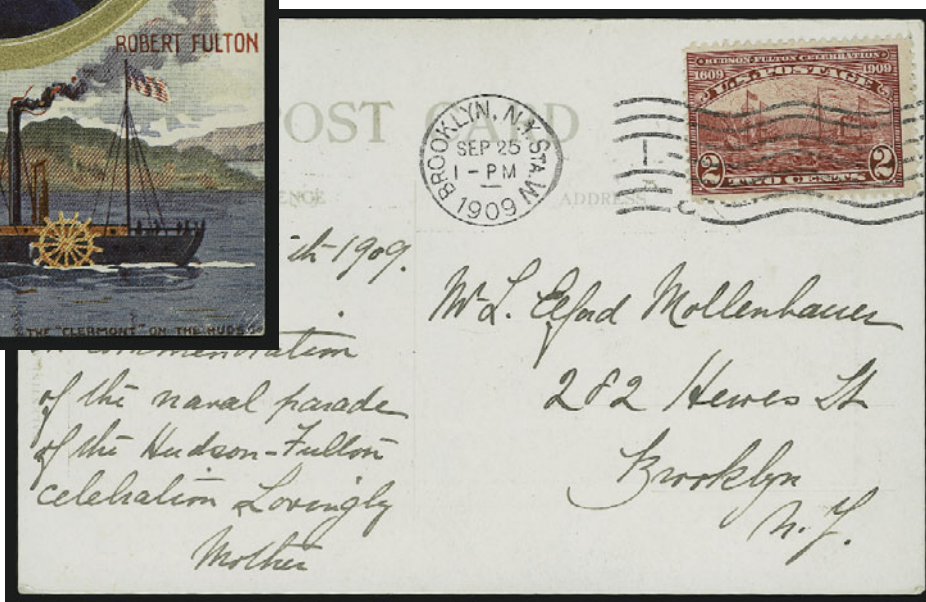 ROBERT FULTON
THE "CLERMONT" ON THE HUDS
OST CARD
ENCE
ADDRESS
BROOKLYN, N.Y. STA. W
SEP 25
1 - PM
1909
HUDSON-FULTON CELEBRATION
1609 1909
U.S. POSTAGE
2 2
TWO CENTS
th 1909.
commemoration
of the naval parade
of the Hudson-Fulton
celebration Lovingly
Mother
Mr L. Elford Mollenhauer
282 Hewes St
Brooklyn
N.Y.